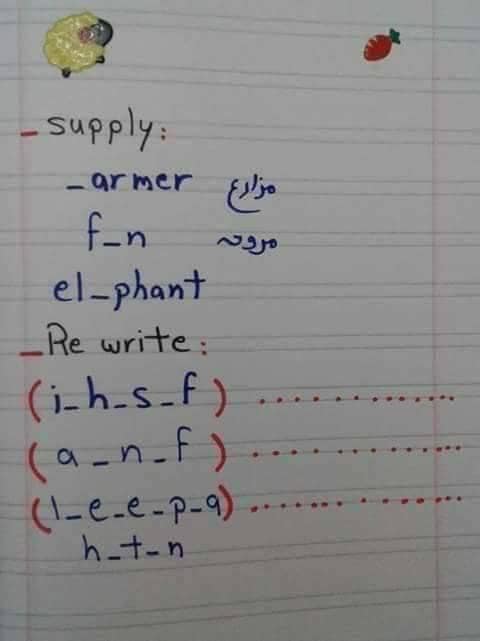 - supply:
_armer مزارع
f_n مروحه
el_phant
- Re write:
(i_h_s_f) ................
(a_n_f) ................
(l_e_e_p_a) ................
h_t_n